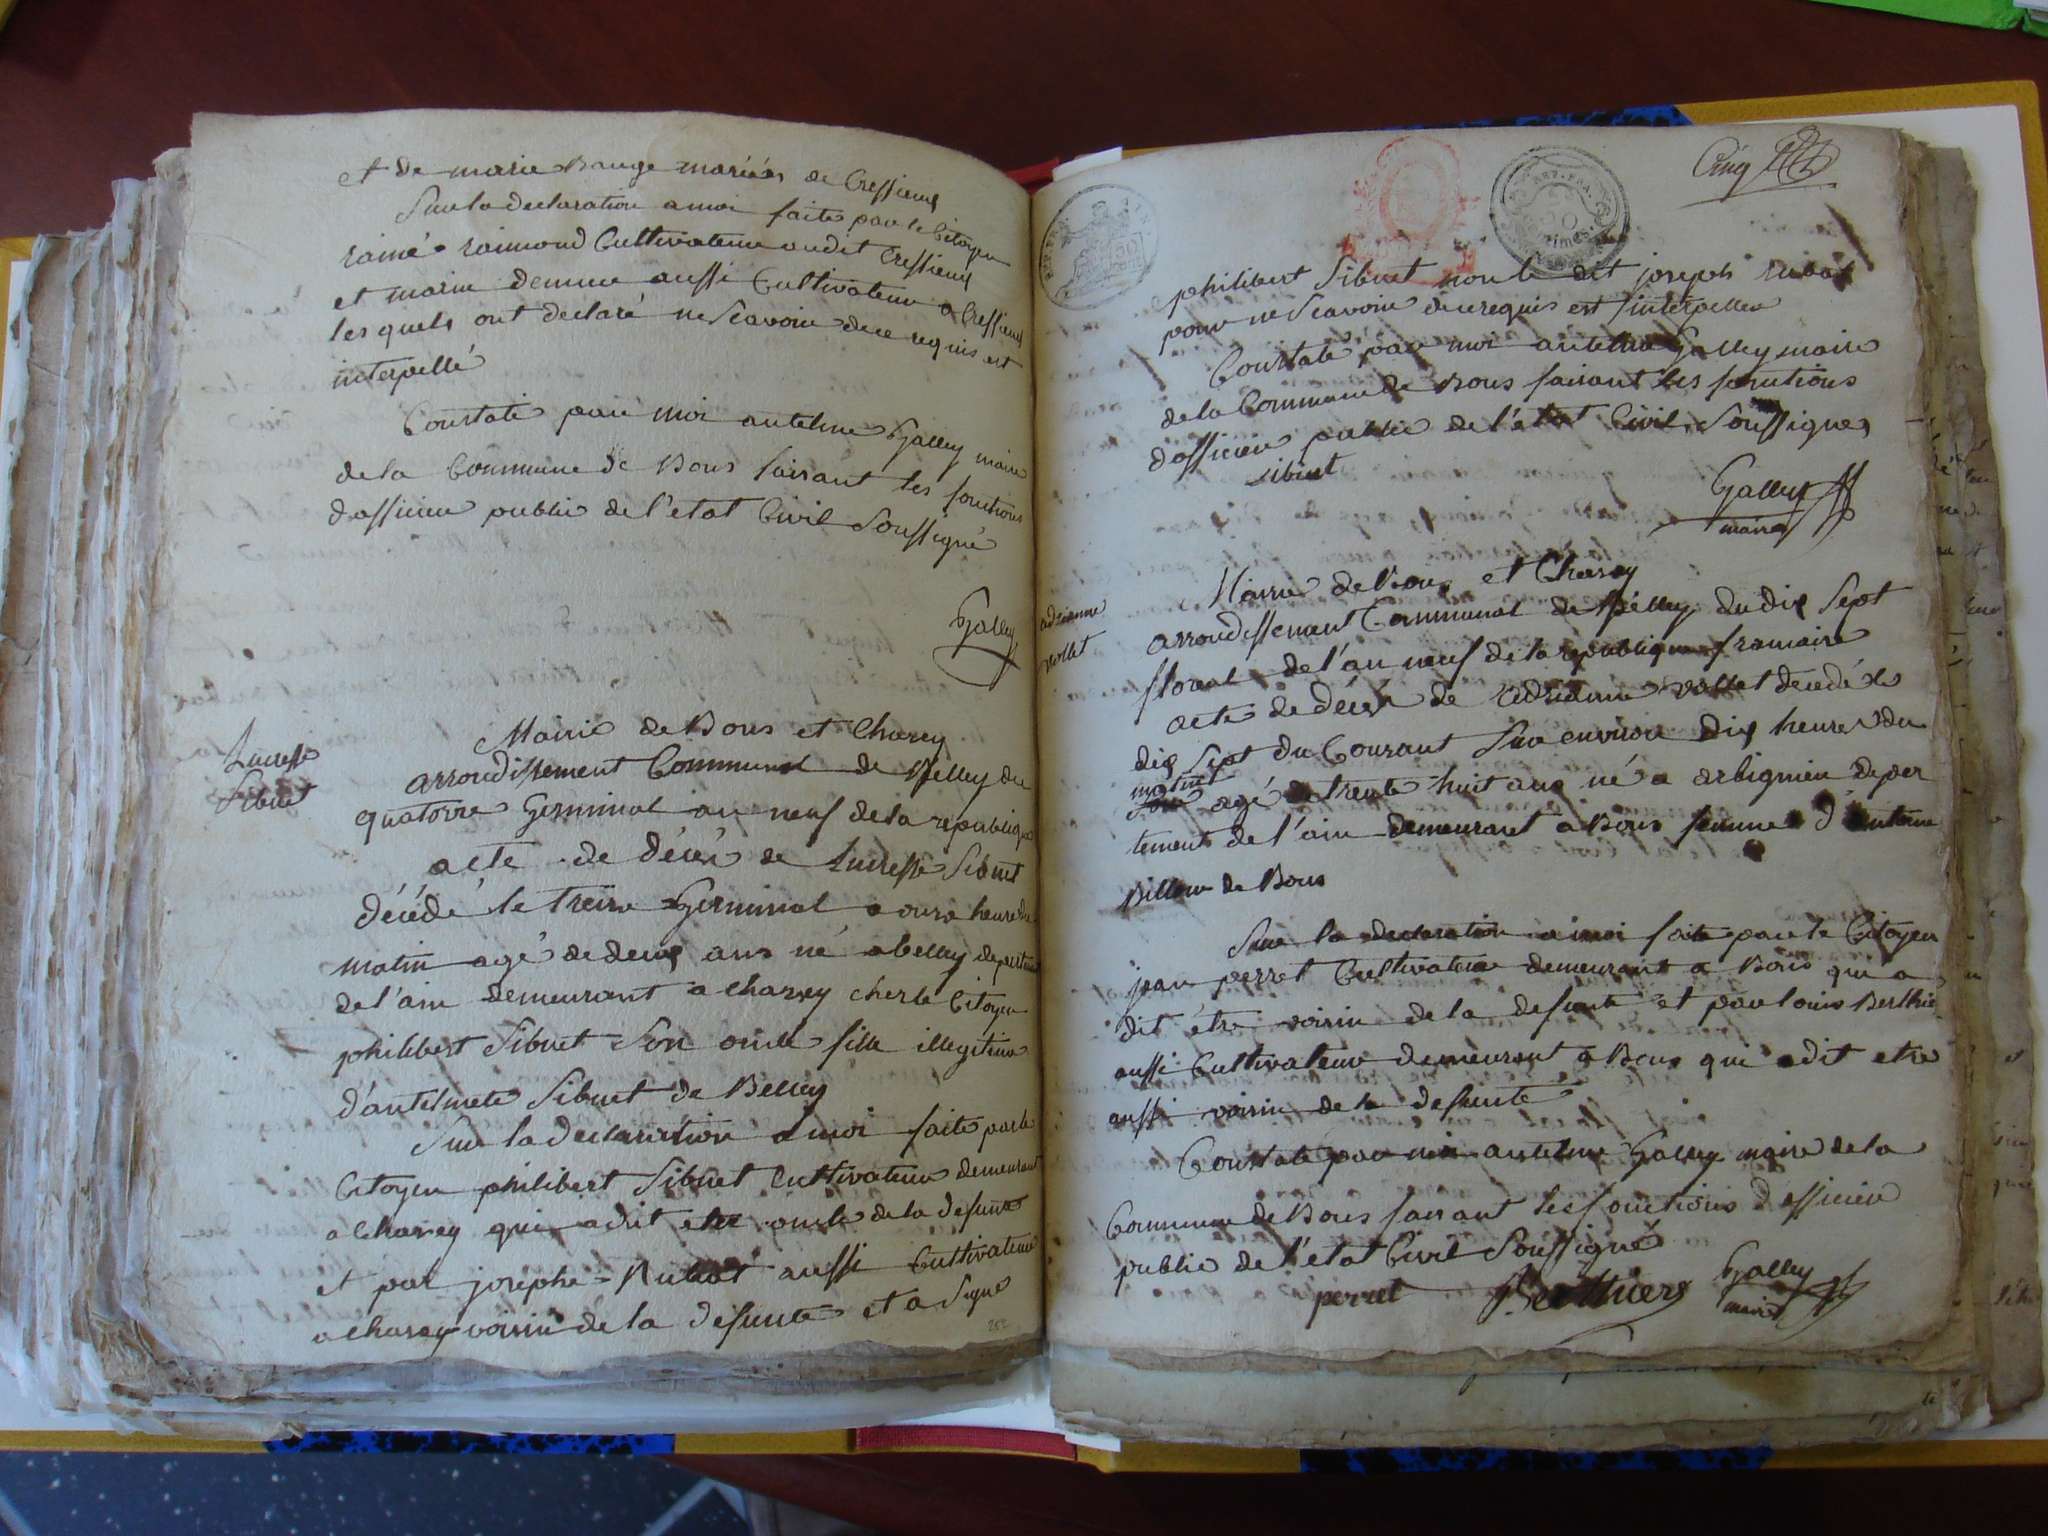 et de marie Bauge mariés de Cressieux
Sur la declaration a moi faite par le Citoyen
raimond Cultivateur audit Cressieux
et marin demeure aussi Cultivateur a Cressieux
les quels ont declaré ne Scavoir de ce requis est
interpellé
Constaté par moi antelme Galley maire
de la Commune de Bons faisant les fonctions
d'officier public de l'etat Civil Soussigné
Galley
Lucresse
Sibuet
Mairie de Bons et Chazey
arrondissement Communal de Belley du
quatorze Germinal an neuf de la republique
acte de décés de Lucresse Sibuet
décédé le treize Germinal a onze heure du
matin agé de deux ans né a belley departement
de l'ain demeurant a chazey chez le Citoyen
philibert Sibuet Son oncle fille illegitime
d'antelmete Sibuet de Belley
Sur la declaration a moi faite par le
Citoyen philibert Sibuet Cultivateur demeurant
a Chazey qui a dit etre oncle de la defunte
et par josephe Rubat aussi Cultivateur
a chazey voisin de la defunte et a Signé
252
Cinq
philibert Sibuet non le dit joseph rubat
pour ne Scavoir de ce requis est interpeller
Constaté par moi antelme Galley maire
de la Commune de Bons faisant les fonctions
d'officier public de l'état Civil Soussignés
sibuet
Galley
maire
adrianne
vollet
Mairie de Bons et Chazey
arrondissement Communal de Belley du dix Sept
floreal de l'an neuf de la republique francaise
acte de décés de adrianne vollet decedé le
dix Sept du Courant Sur environ dix heures du
matin
agé de trente huit ans né a arbignieu depar
tement de l'ain demeurant a Bons femme d'antoine
Billion de Bons
Sur la declaration a moi faite par le Citoyen
jean perret Cultivateur demeurant a Bons qui a
dit être voisin de la defunte et par louis Berthie
aussi Cultivateur demeurant a Bons qui a dit etre
aussi voisin de la defunte
Constaté par moi antelme Galley maire de la
Commune de Bons faisant les fonctions d'officier
public de l'etat Civil Soussigné
perret Berthier Galley
maire